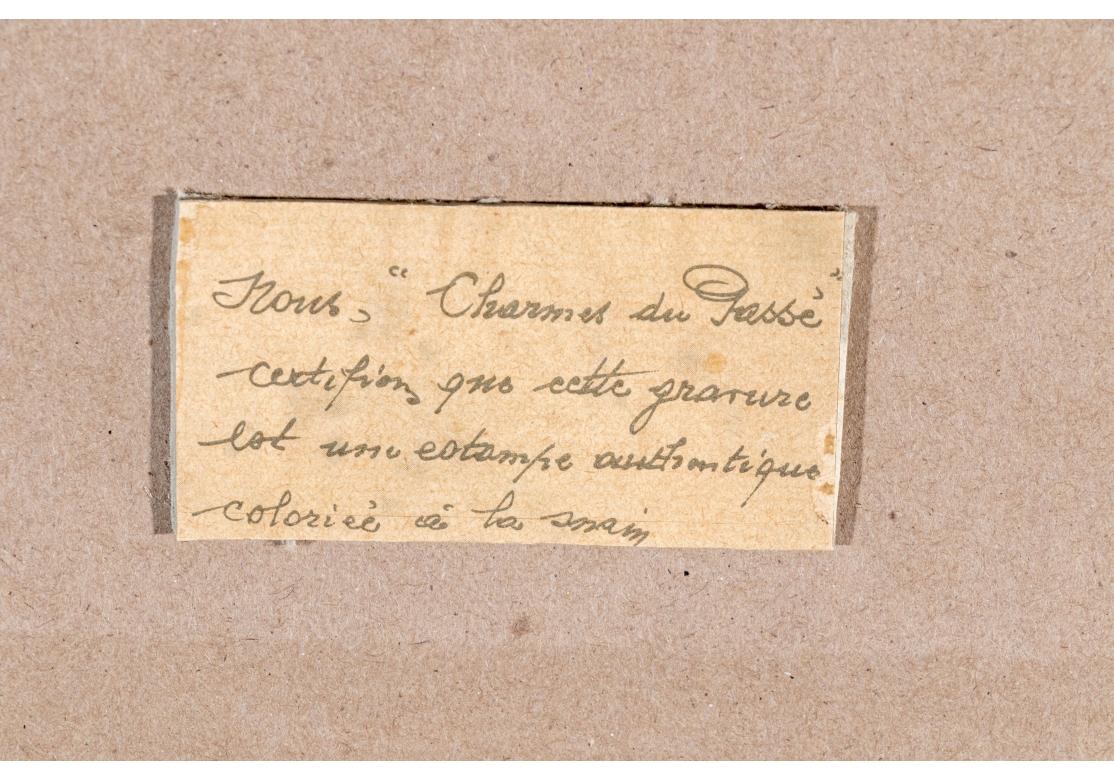 Nous, " Charmes du Passé"
certifions que cette gravure
est une estampe authentique
coloriée à la main